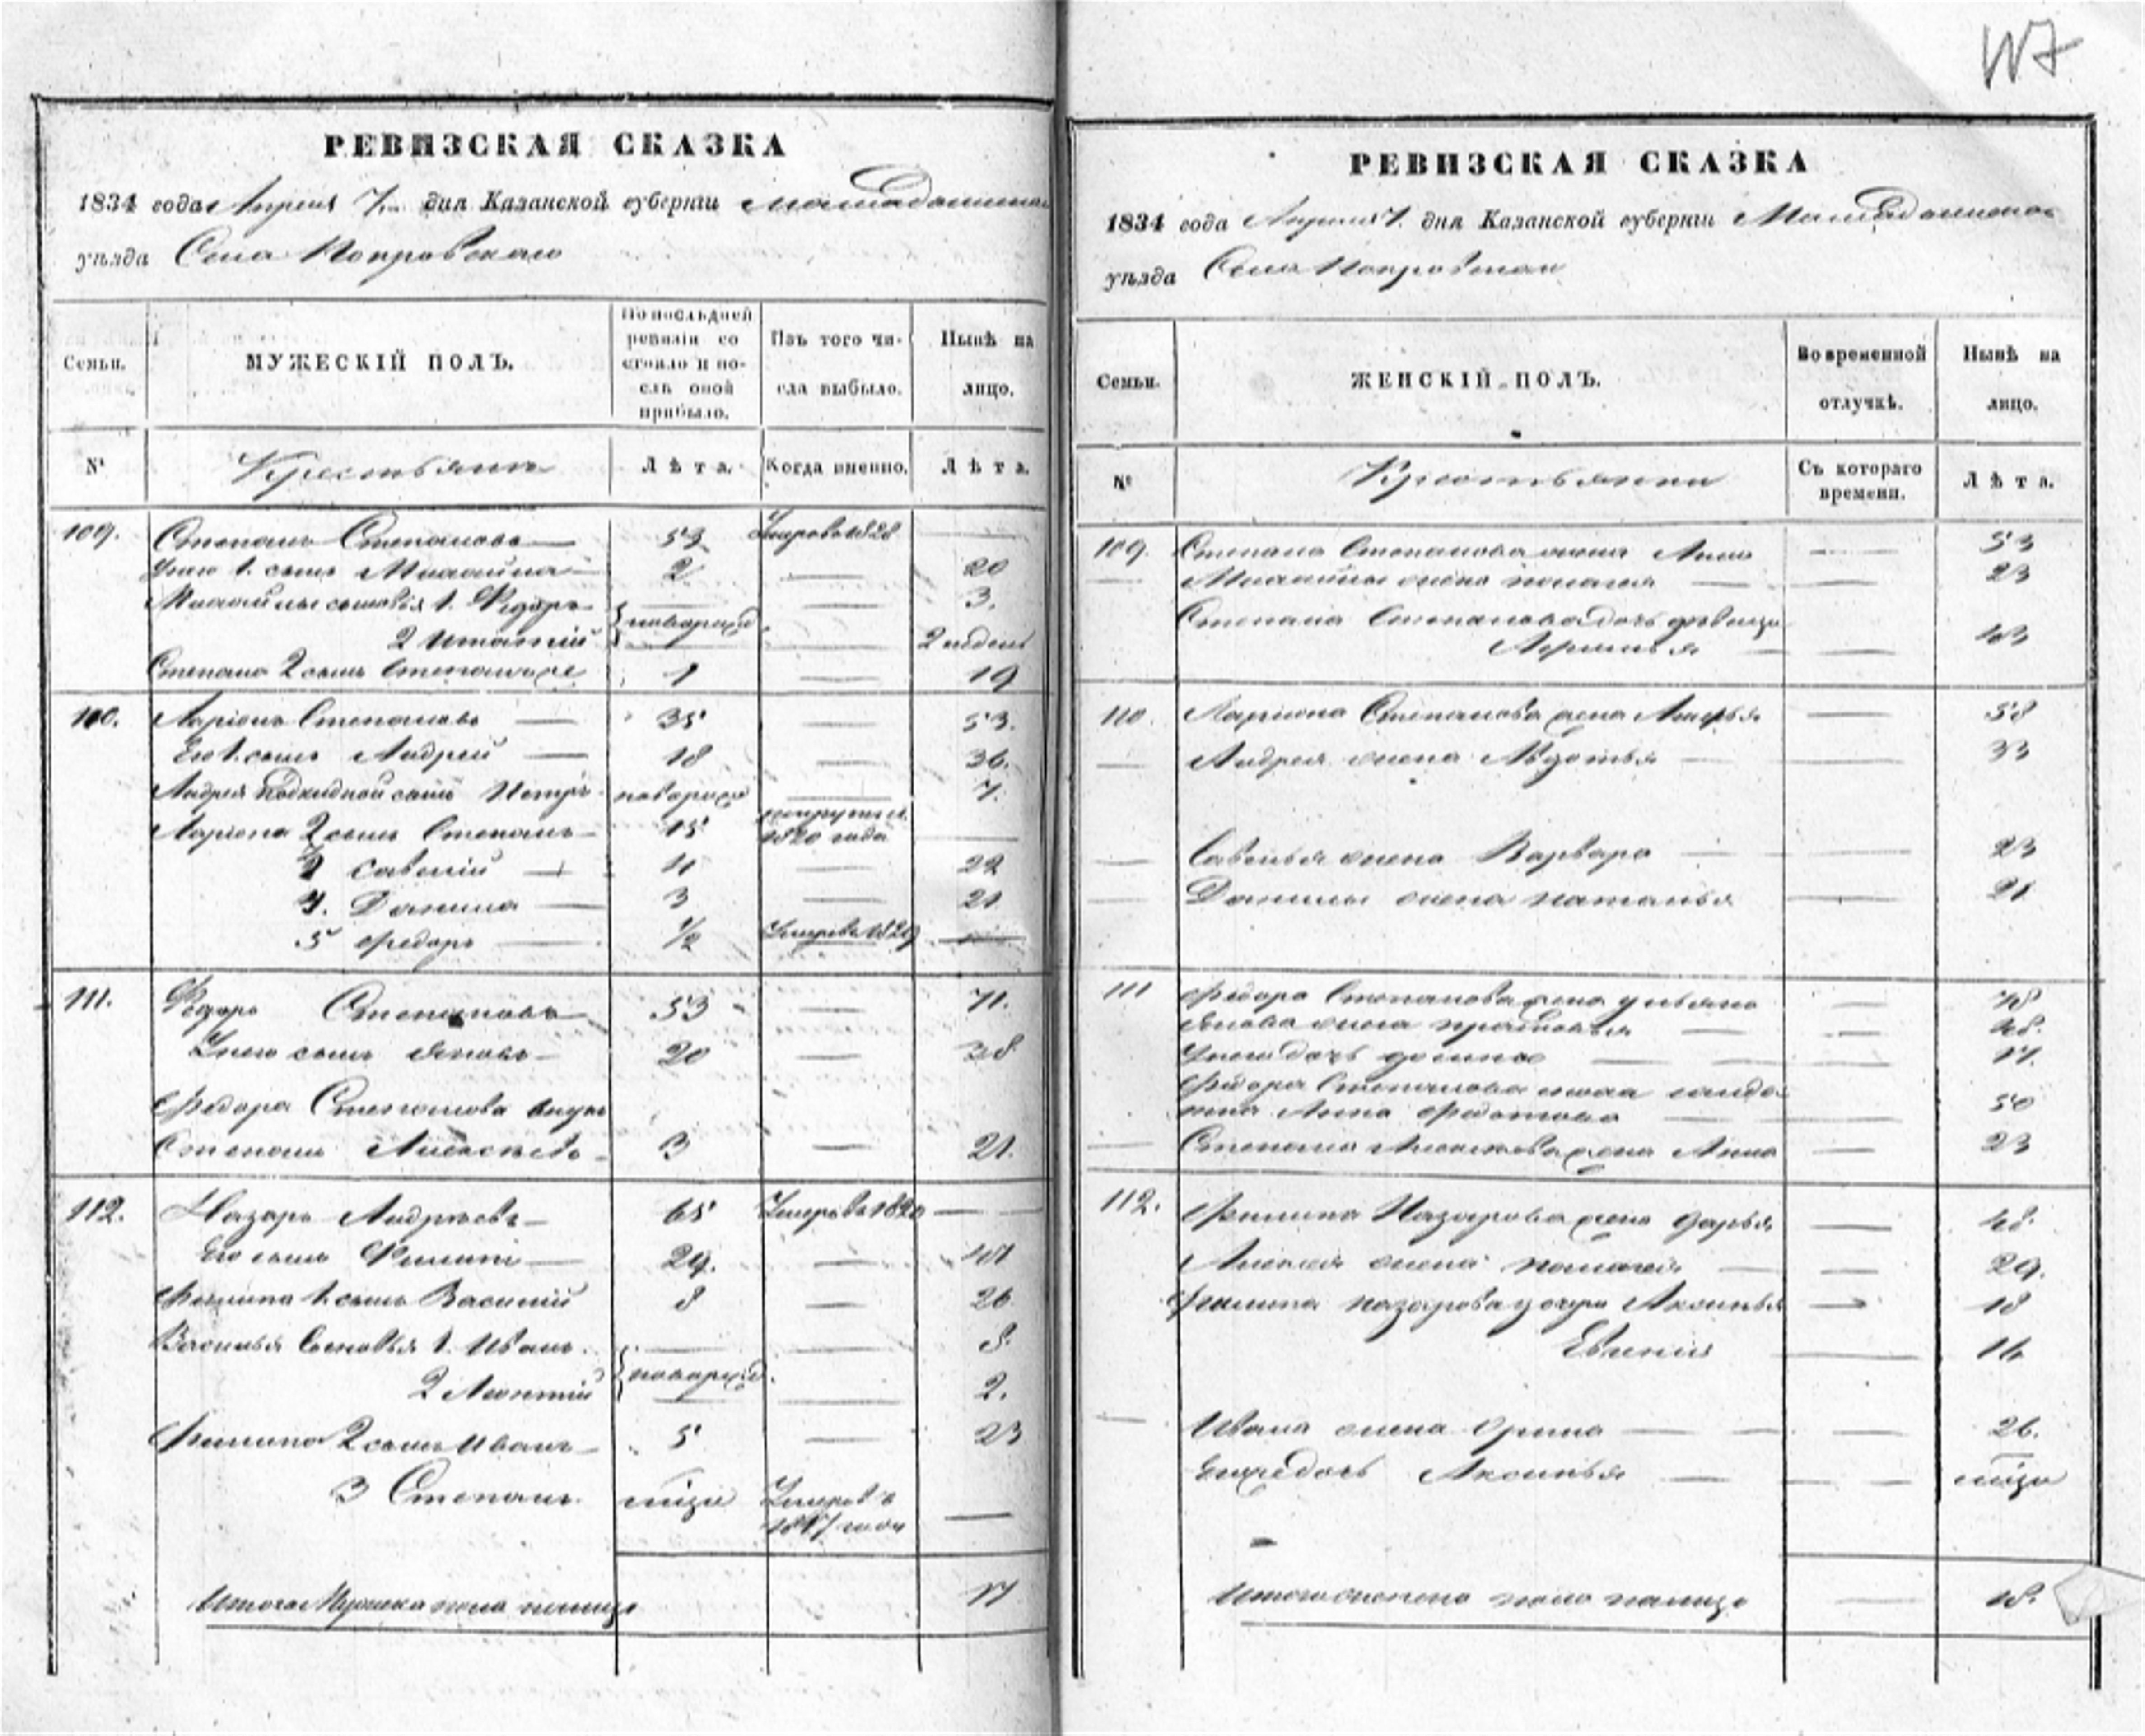 РЕВИЗСКАЯ СКАЗКА
1834 года Апреля 7 дня Казанской губернiи
уѣзда Села Покровскаго
Семьи. МУЖЕСКIЙ ПОЛЪ. По послѣдней ревизiи состояло и послѣ оной прибыло. Изъ того числа выбыло. Нынѣ на лицо.
№ Крестьяне Лѣта. Когда именно. Лѣта.
109. Степанъ Степановъ 53 Умеръ въ 1828
У него 1. сынъ Михайла 2 20
Михайлы сыновья 1. Федоръ 3.
2 новорожд. 2 недели
Степана 2 сынъ 1 19
110. Ларiонъ Степановъ 35 53.
Его 1. сынъ Андрей 18 36.
Андрея Подкидной сынъ Петръ новорожд 7.
Ларiона 2 сынъ Степанъ 15 1820 года
Савелiй 11 29
4. Данила 3 21
5 Федоръ 1/2 Умеръ въ 1829
111. Федоръ Степановъ 53 71.
У него сынъ Яковъ 20 38
Федора Степанова внукъ
Степанъ Алексѣевъ 3 21.
112. Назаръ Андреевъ 65 Умеръ въ 1820
Его сынъ Филипъ 29. 47
Филипа 1. сынъ Василiй 8 26
Василья Сыновья 1. Иванъ 8.
2 Леонтiй новорожд. 2.
Филипа 2 сынъ Иванъ 5 23
3 Степанъ Умеръ въ
1817 году
Итого Мужска пола на лицо 17
117
РЕВИЗСКАЯ СКАЗКА
1834 года Апреля 7. дня Казанской губернiи
уѣзда Села Покровскаго
Семьи. ЖЕНСКIЙ ПОЛЪ. Во временной отлучкѣ. Нынѣ на лицо.
№ Крестьянки Съ котораго времени. Лѣта.
109. Степана Степанова жена Анна 53
Михайлы жена Пелагея 23
Степана Степанова дочь девица
43
110. Ларiона Степанова жена 58
Андрея жена Авдотья 33
Савелья жена Варвара 23
Данилы жена Наталья 21
111 Федора Степанова жена Ульяна
Якова жена Прасковья 48.
У него дочь 17.
Федора Степанова
Анна Федотова 50
Степана Алексѣева жена Анна 23
112. Филипа Назарова жена Дарья 48.
Алексея жена Пелагея 29.
Филипа Назарова дочери Аксинья 18
Евгенiя 16
Ивана жена Орина 26.
Ея же дочь Аксинья
Итого женска пола на лицо 18.